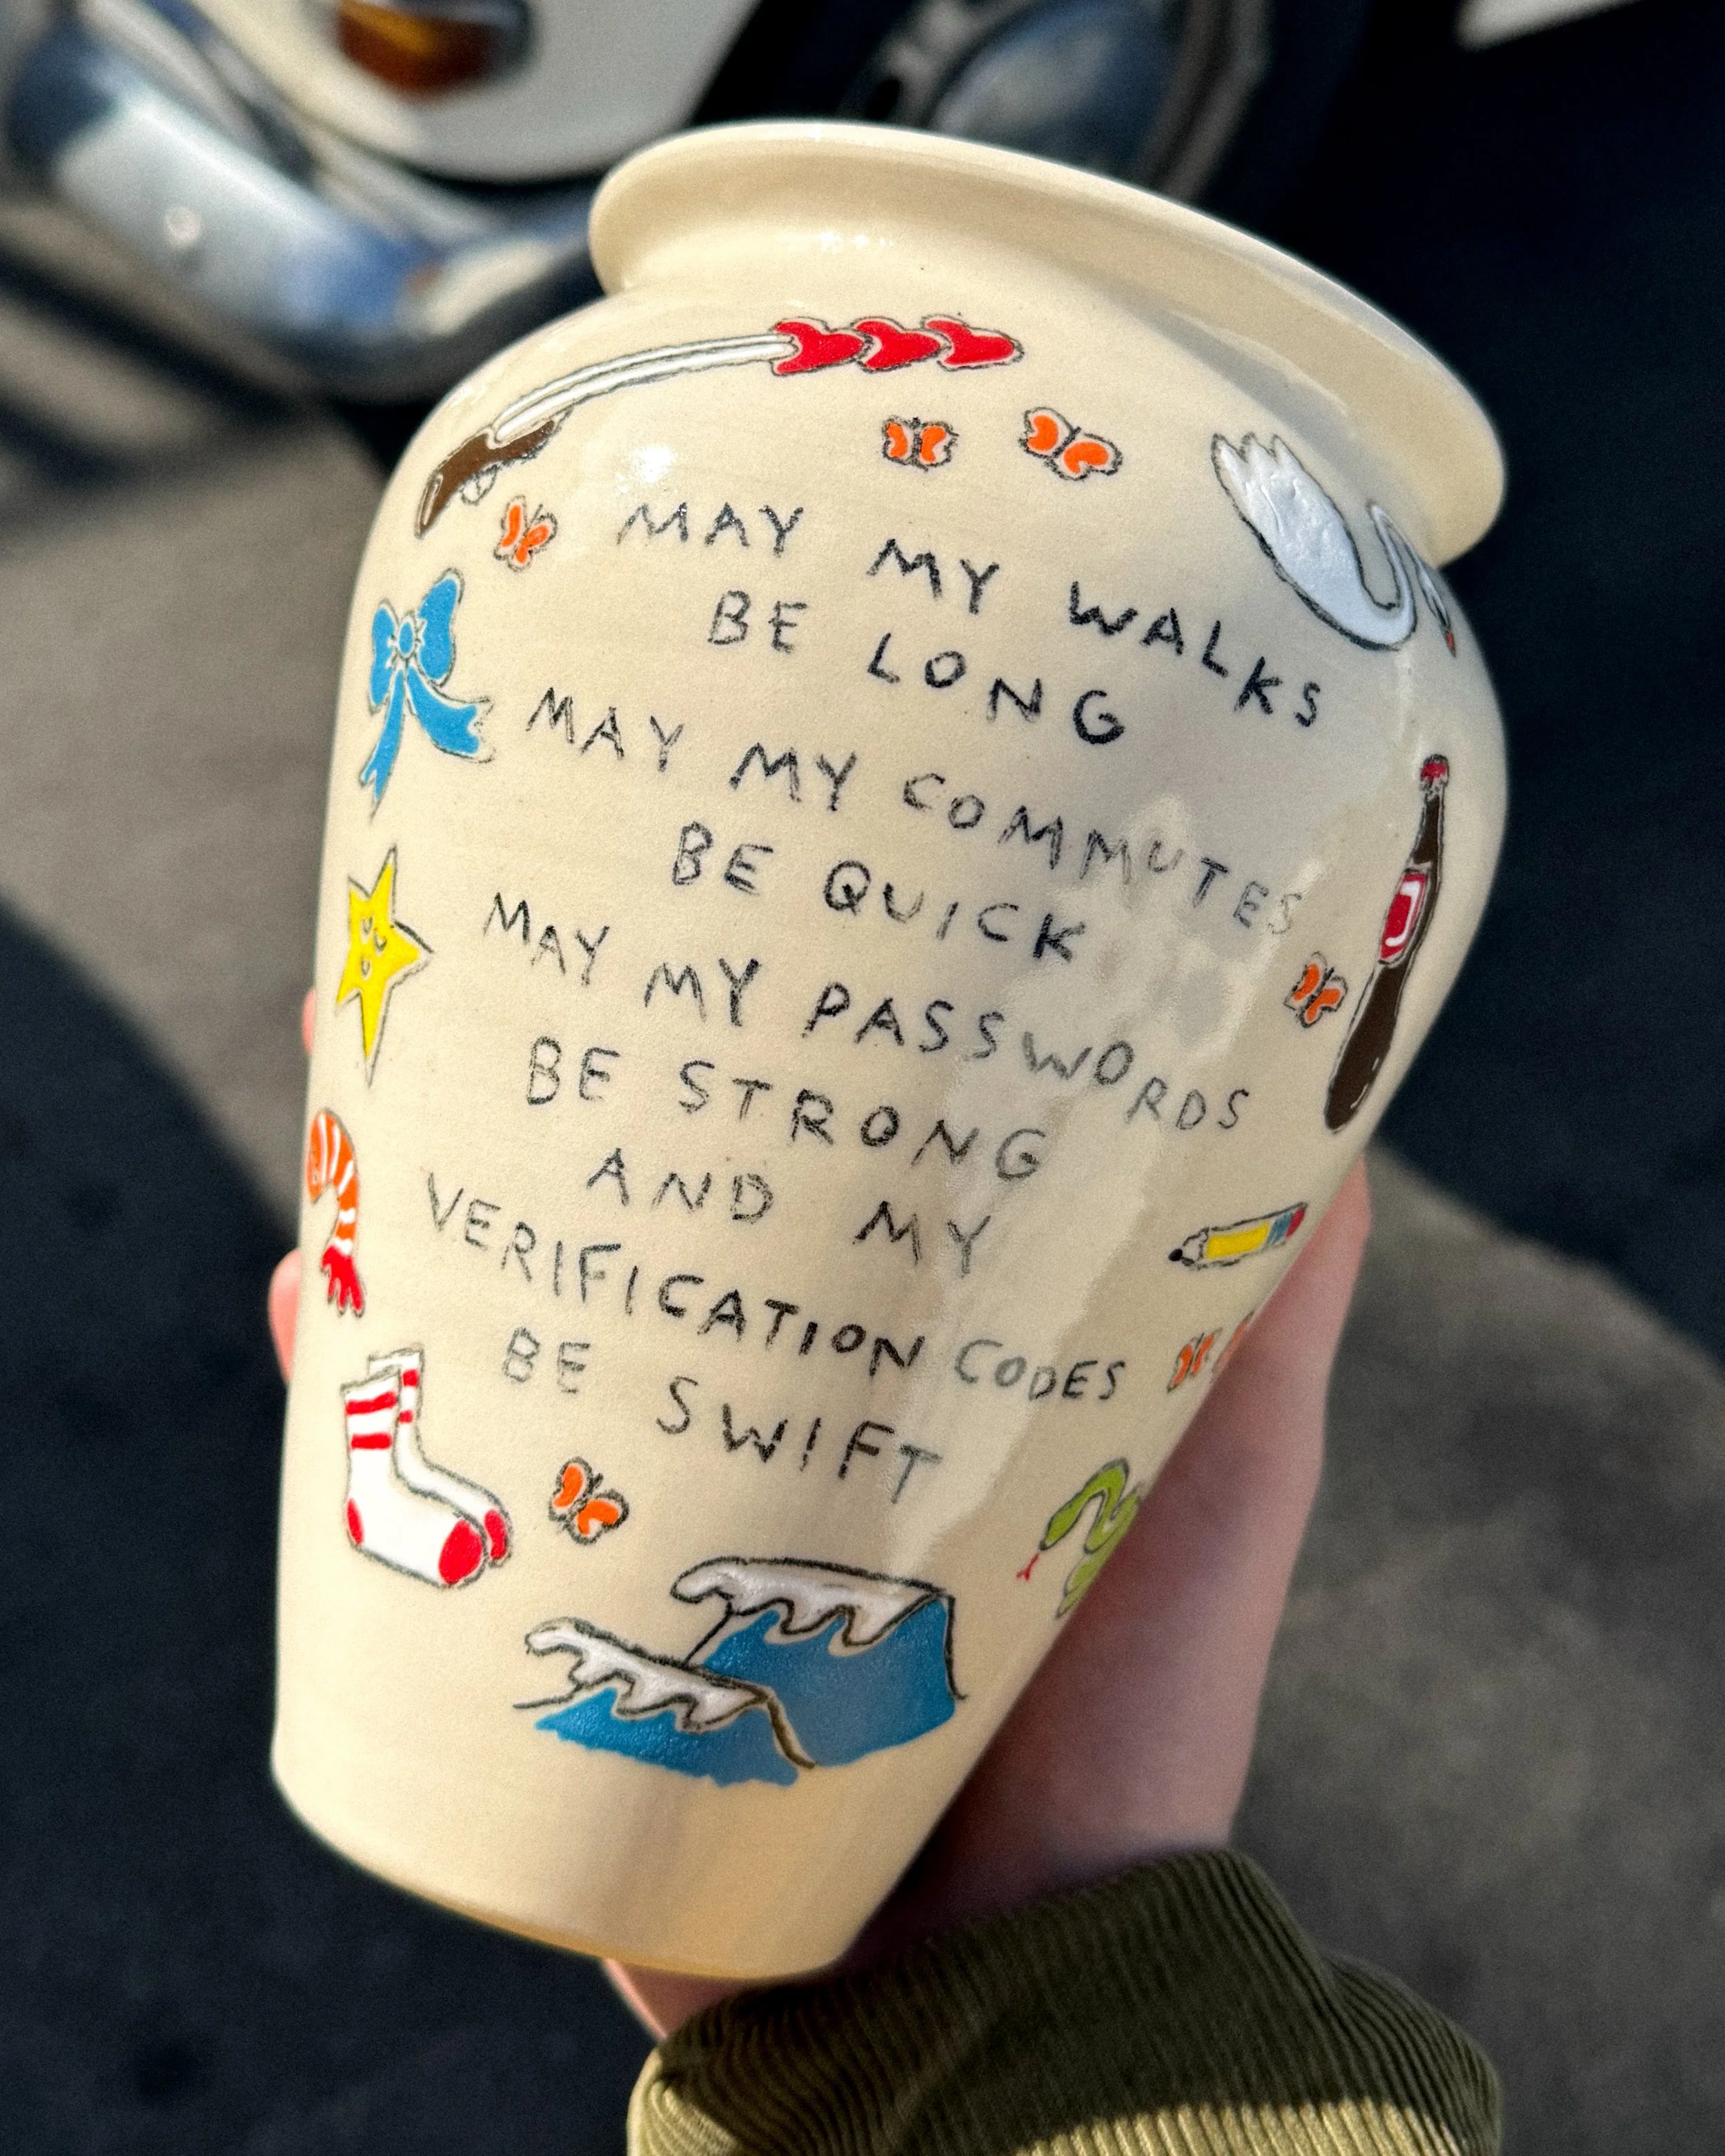 MAY MY WALKS
BE LONG
MAY MY COMMUTES
BE QUICK
MAY MY PASSWORDS
BE STRONG
AND MY
VERIFICATION CODES
BE SWIFT